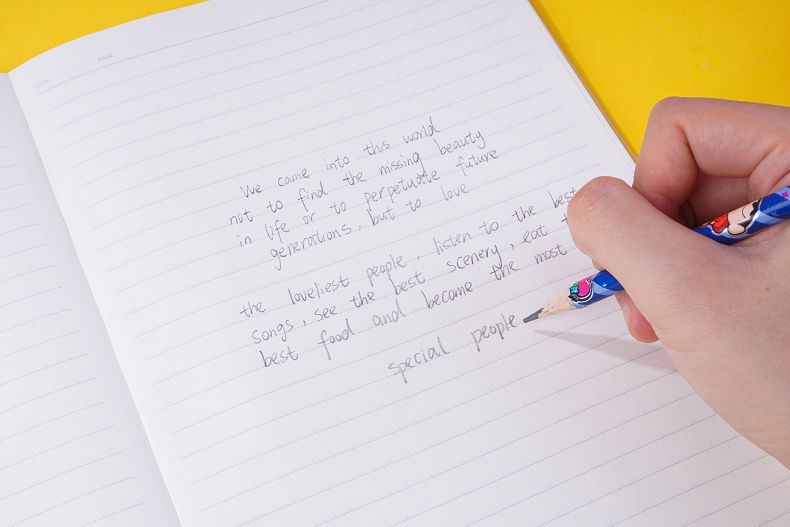 We came into this world
not to find the missing beauty
in life or to perpetuate future
generations, but to love
the loveliest people, listen to the best
songs, see the best scenery, eat
best food and become the most
special people.